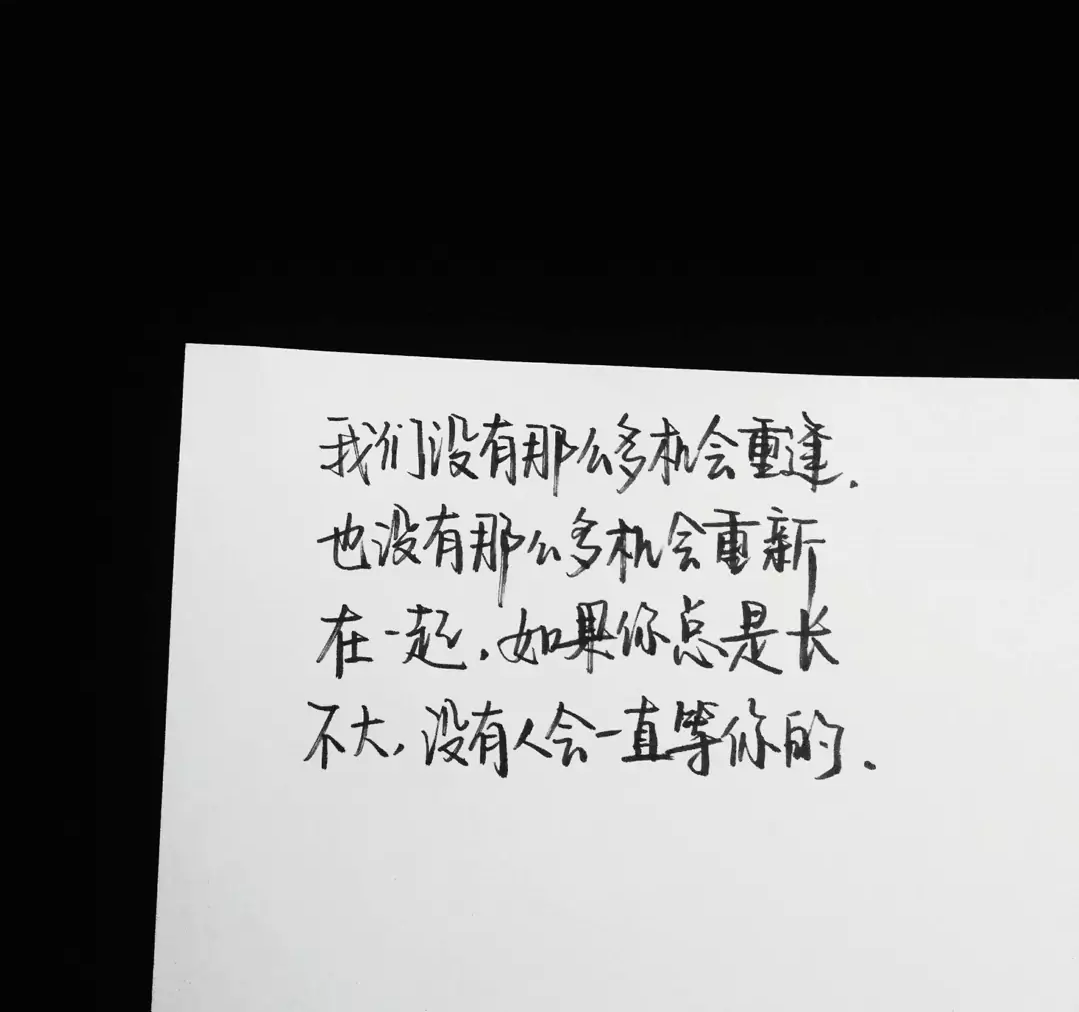 我们没有那么多机会重逢.
也没有那么多机会重新
在一起.如果你总是长
不大,没有人会一直等你的.